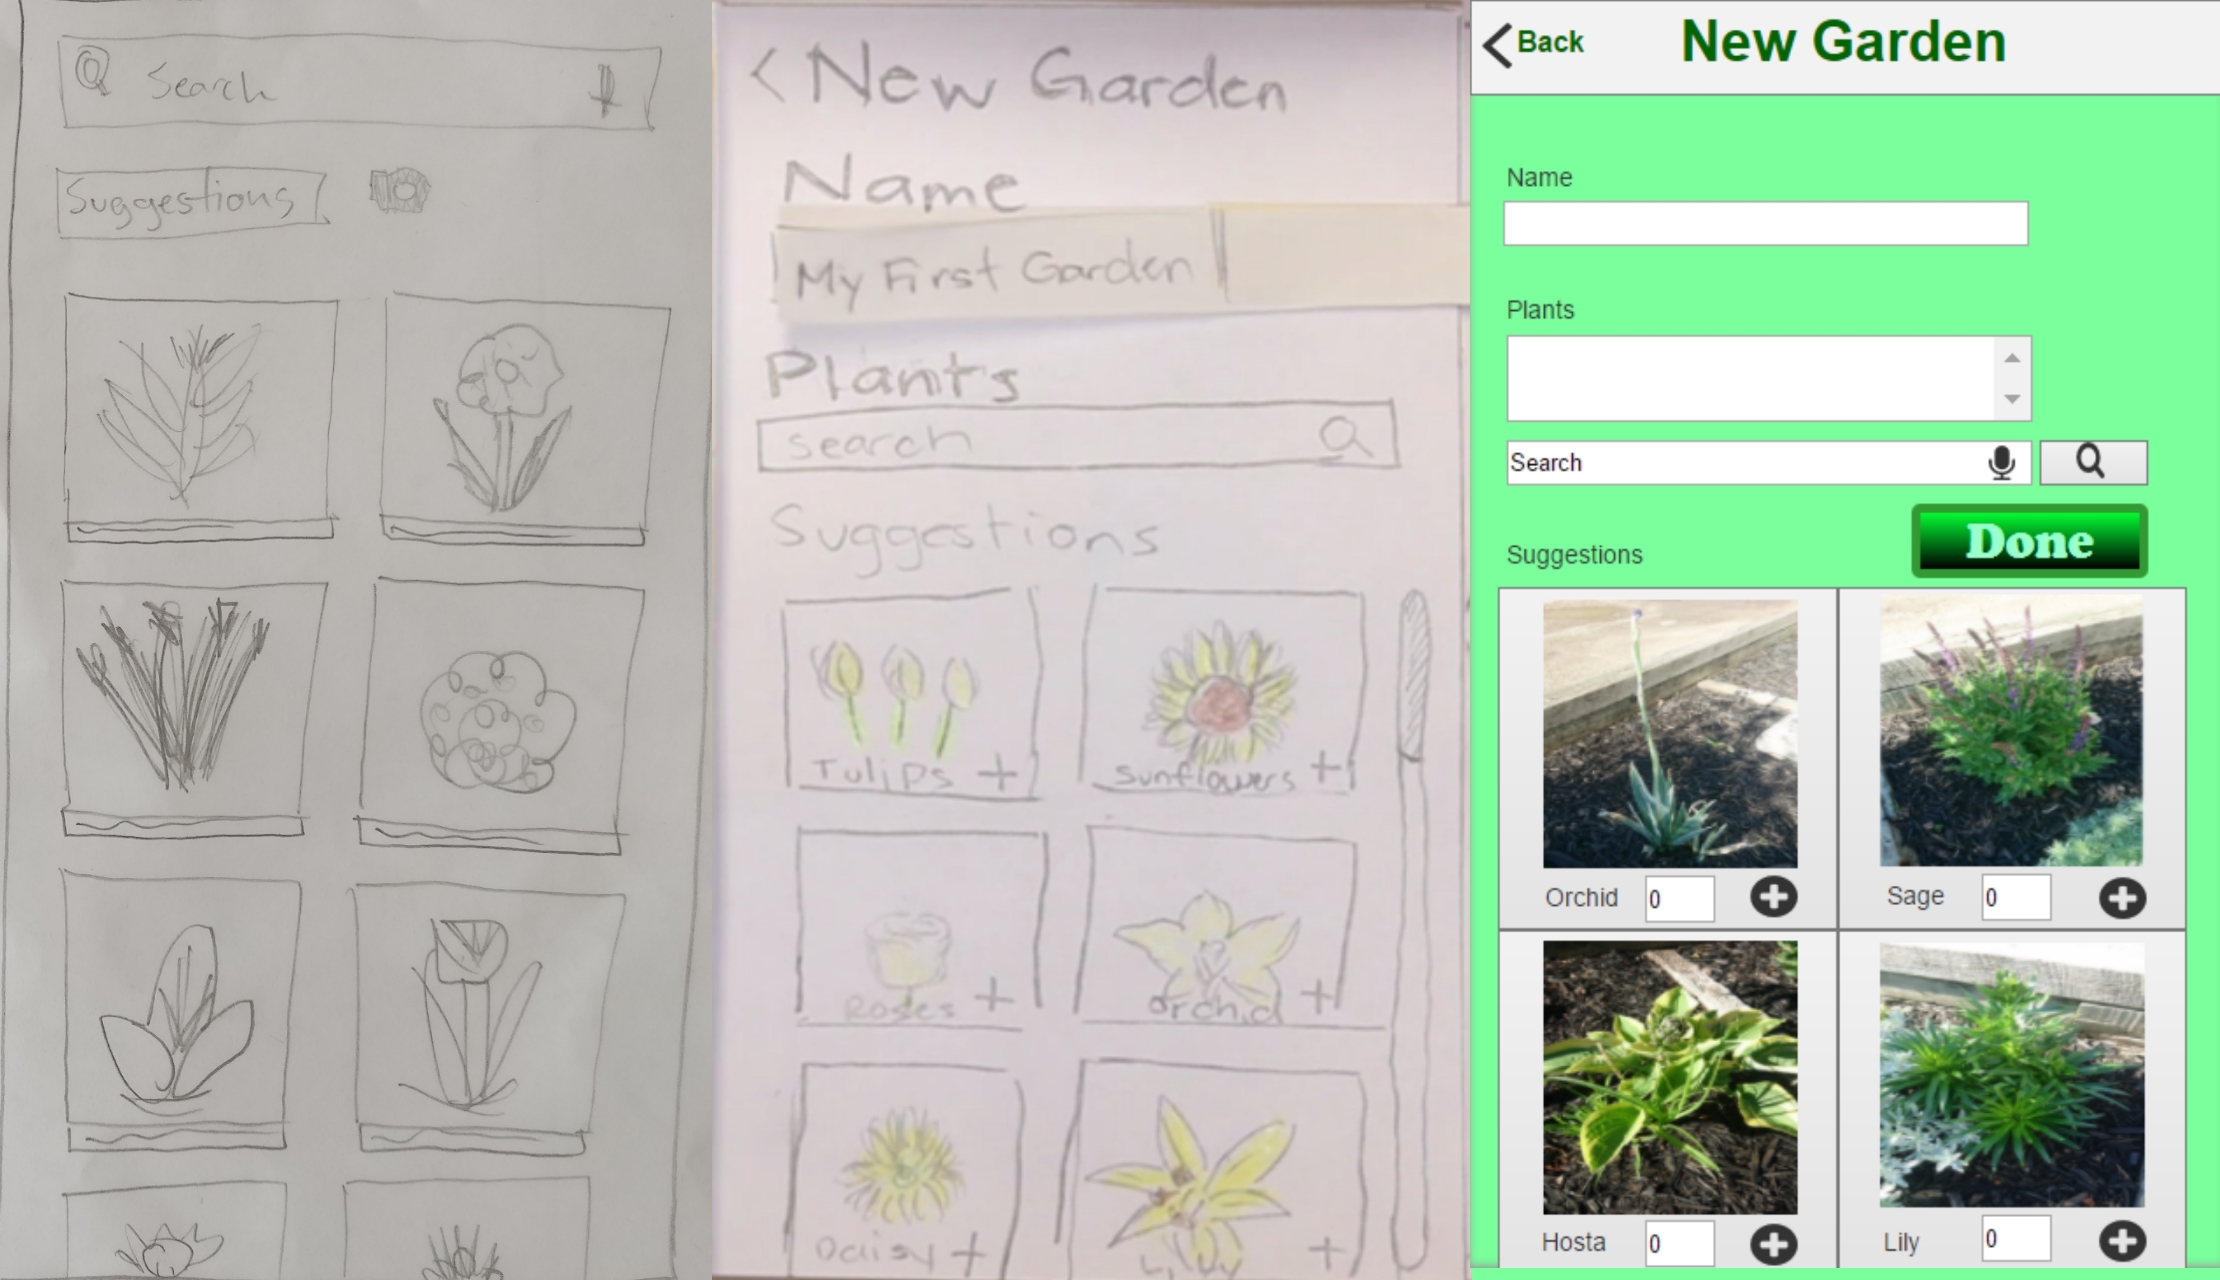 Search
Suggestions
< New Garden
Name
My First Garden
Plants
search
Suggestions
Tulips +
Sunflowers +
Roses +
Orchid +
Daisy +
Lily +
Back
New Garden
Name
Plants
Search
Done
Suggestions
Orchid 0
Sage 0
Hosta 0
Lily 0